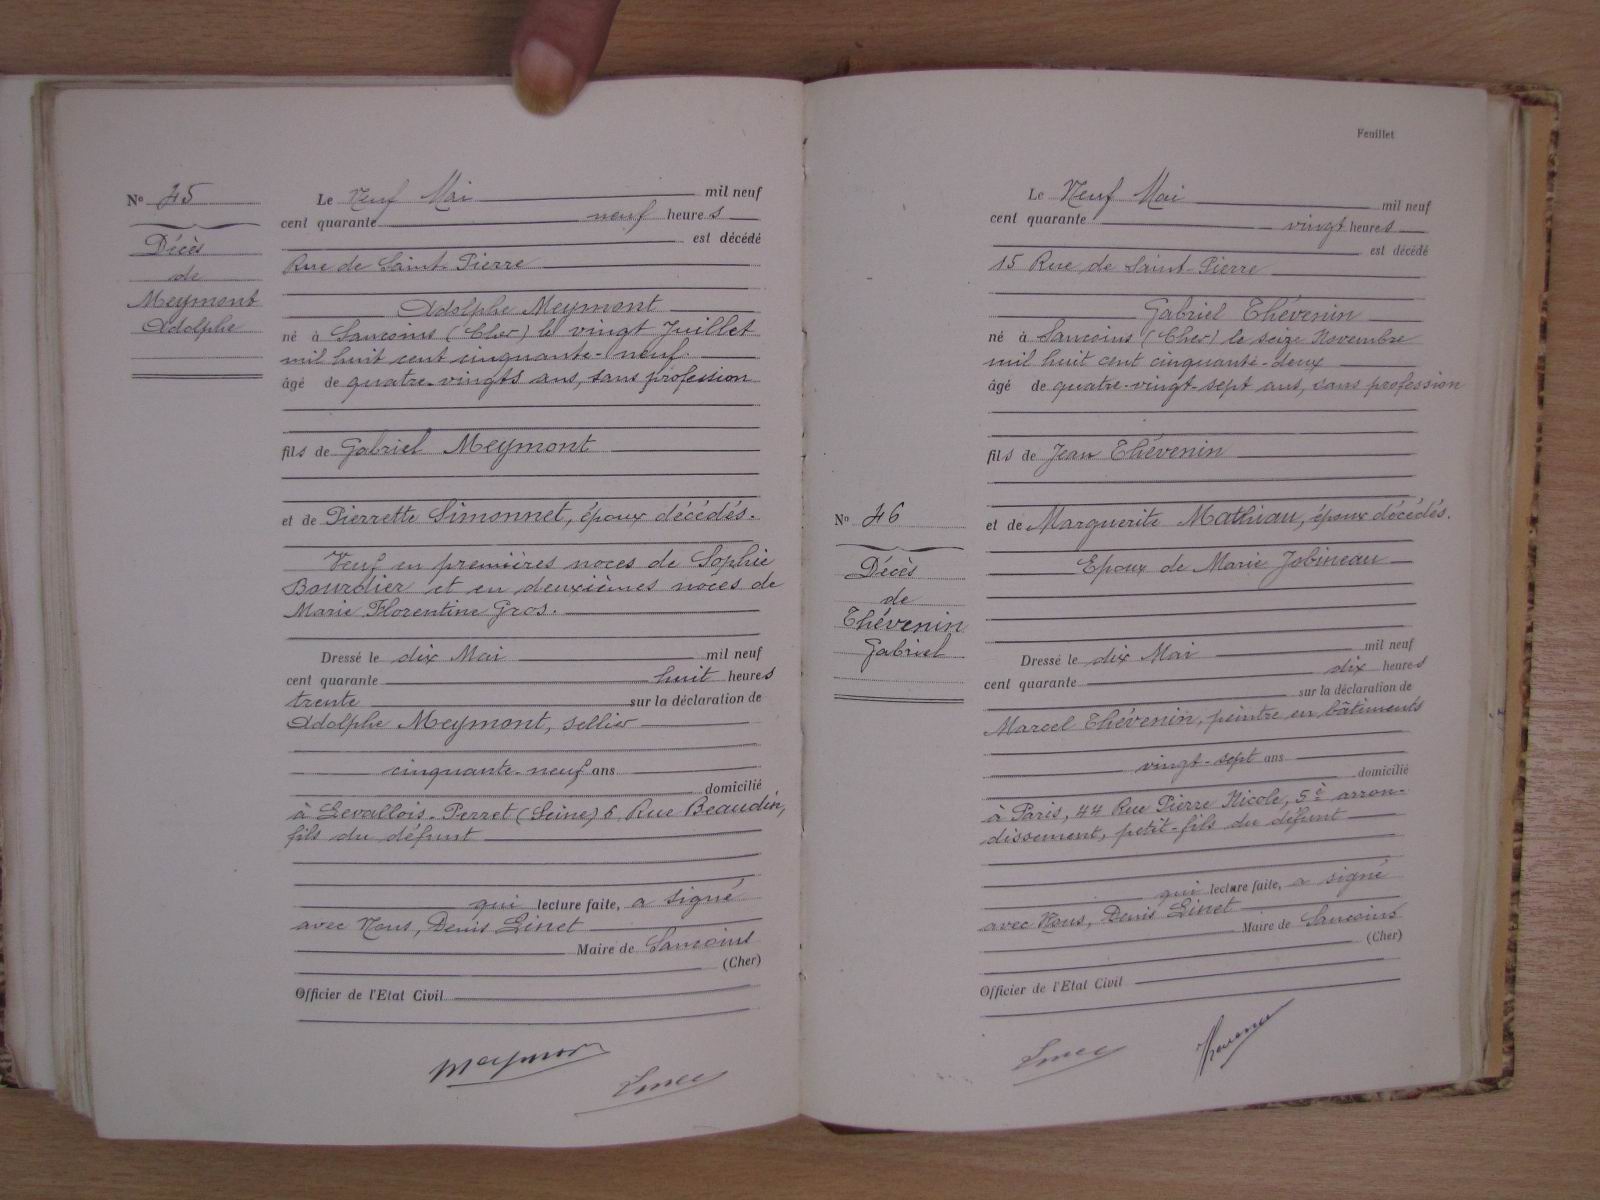 Nº 45
Décès
de
Meymont
Adolphe
Le Neuf Mai mil neuf
cent quarante neuf heures
est décédé
Rue de Saint-Pierre
Adolphe Meymont
né à Sancoins (Cher) le vingt Juillet
mil huit cent cinquante-neuf.
âgé de quatre-vingts ans, sans profession
fils de Gabriel Meymont
et de Pierrette Simonnet, époux décédés.
Veuf en premières noces de Sophie
Bourdier et en deuxièmes noces de
Marie Florentine Gros.
Dressé le dix Mai mil neuf
cent quarante huit heures
trente sur la déclaration de
Adolphe Meymont, sellier
cinquante-neuf ans
domicilié
à Levallois-Perret (Seine) 6 Rue Beaudin,
fils du défunt
qui lecture faite, a signé
avec Nous, Denis Linet
Maire de Sancoins
(Cher)
Officier de l'Etat Civil
Meymont
Linet
Feuillet
Nº 46
Décès
de
Thévenin
Gabriel
Le Neuf Mai mil neuf
cent quarante vingt heures
est décédé
15 Rue de Saint-Pierre
Gabriel Thévenin
né à Sancoins (Cher) le seize Novembre
mil huit cent cinquante-deux
âgé de quatre-vingt-sept ans, sans profession
fils de Jean Thévenin
et de Marguerite Mathiau, époux décédés.
Epoux de Marie Jobineau
Dressé le dix Mai mil neuf
cent quarante dix heures
sur la déclaration de
Marcel Thévenin, peintre en bâtiments
vingt-sept ans
domicilié
à Paris, 44 Rue Pierre Nicole, 5e arron-
dissement, petit-fils du défunt
qui lecture faite, a signé
avec Nous, Denis Linet
Maire de Sancoins
(Cher)
Officier de l'Etat Civil
Linet